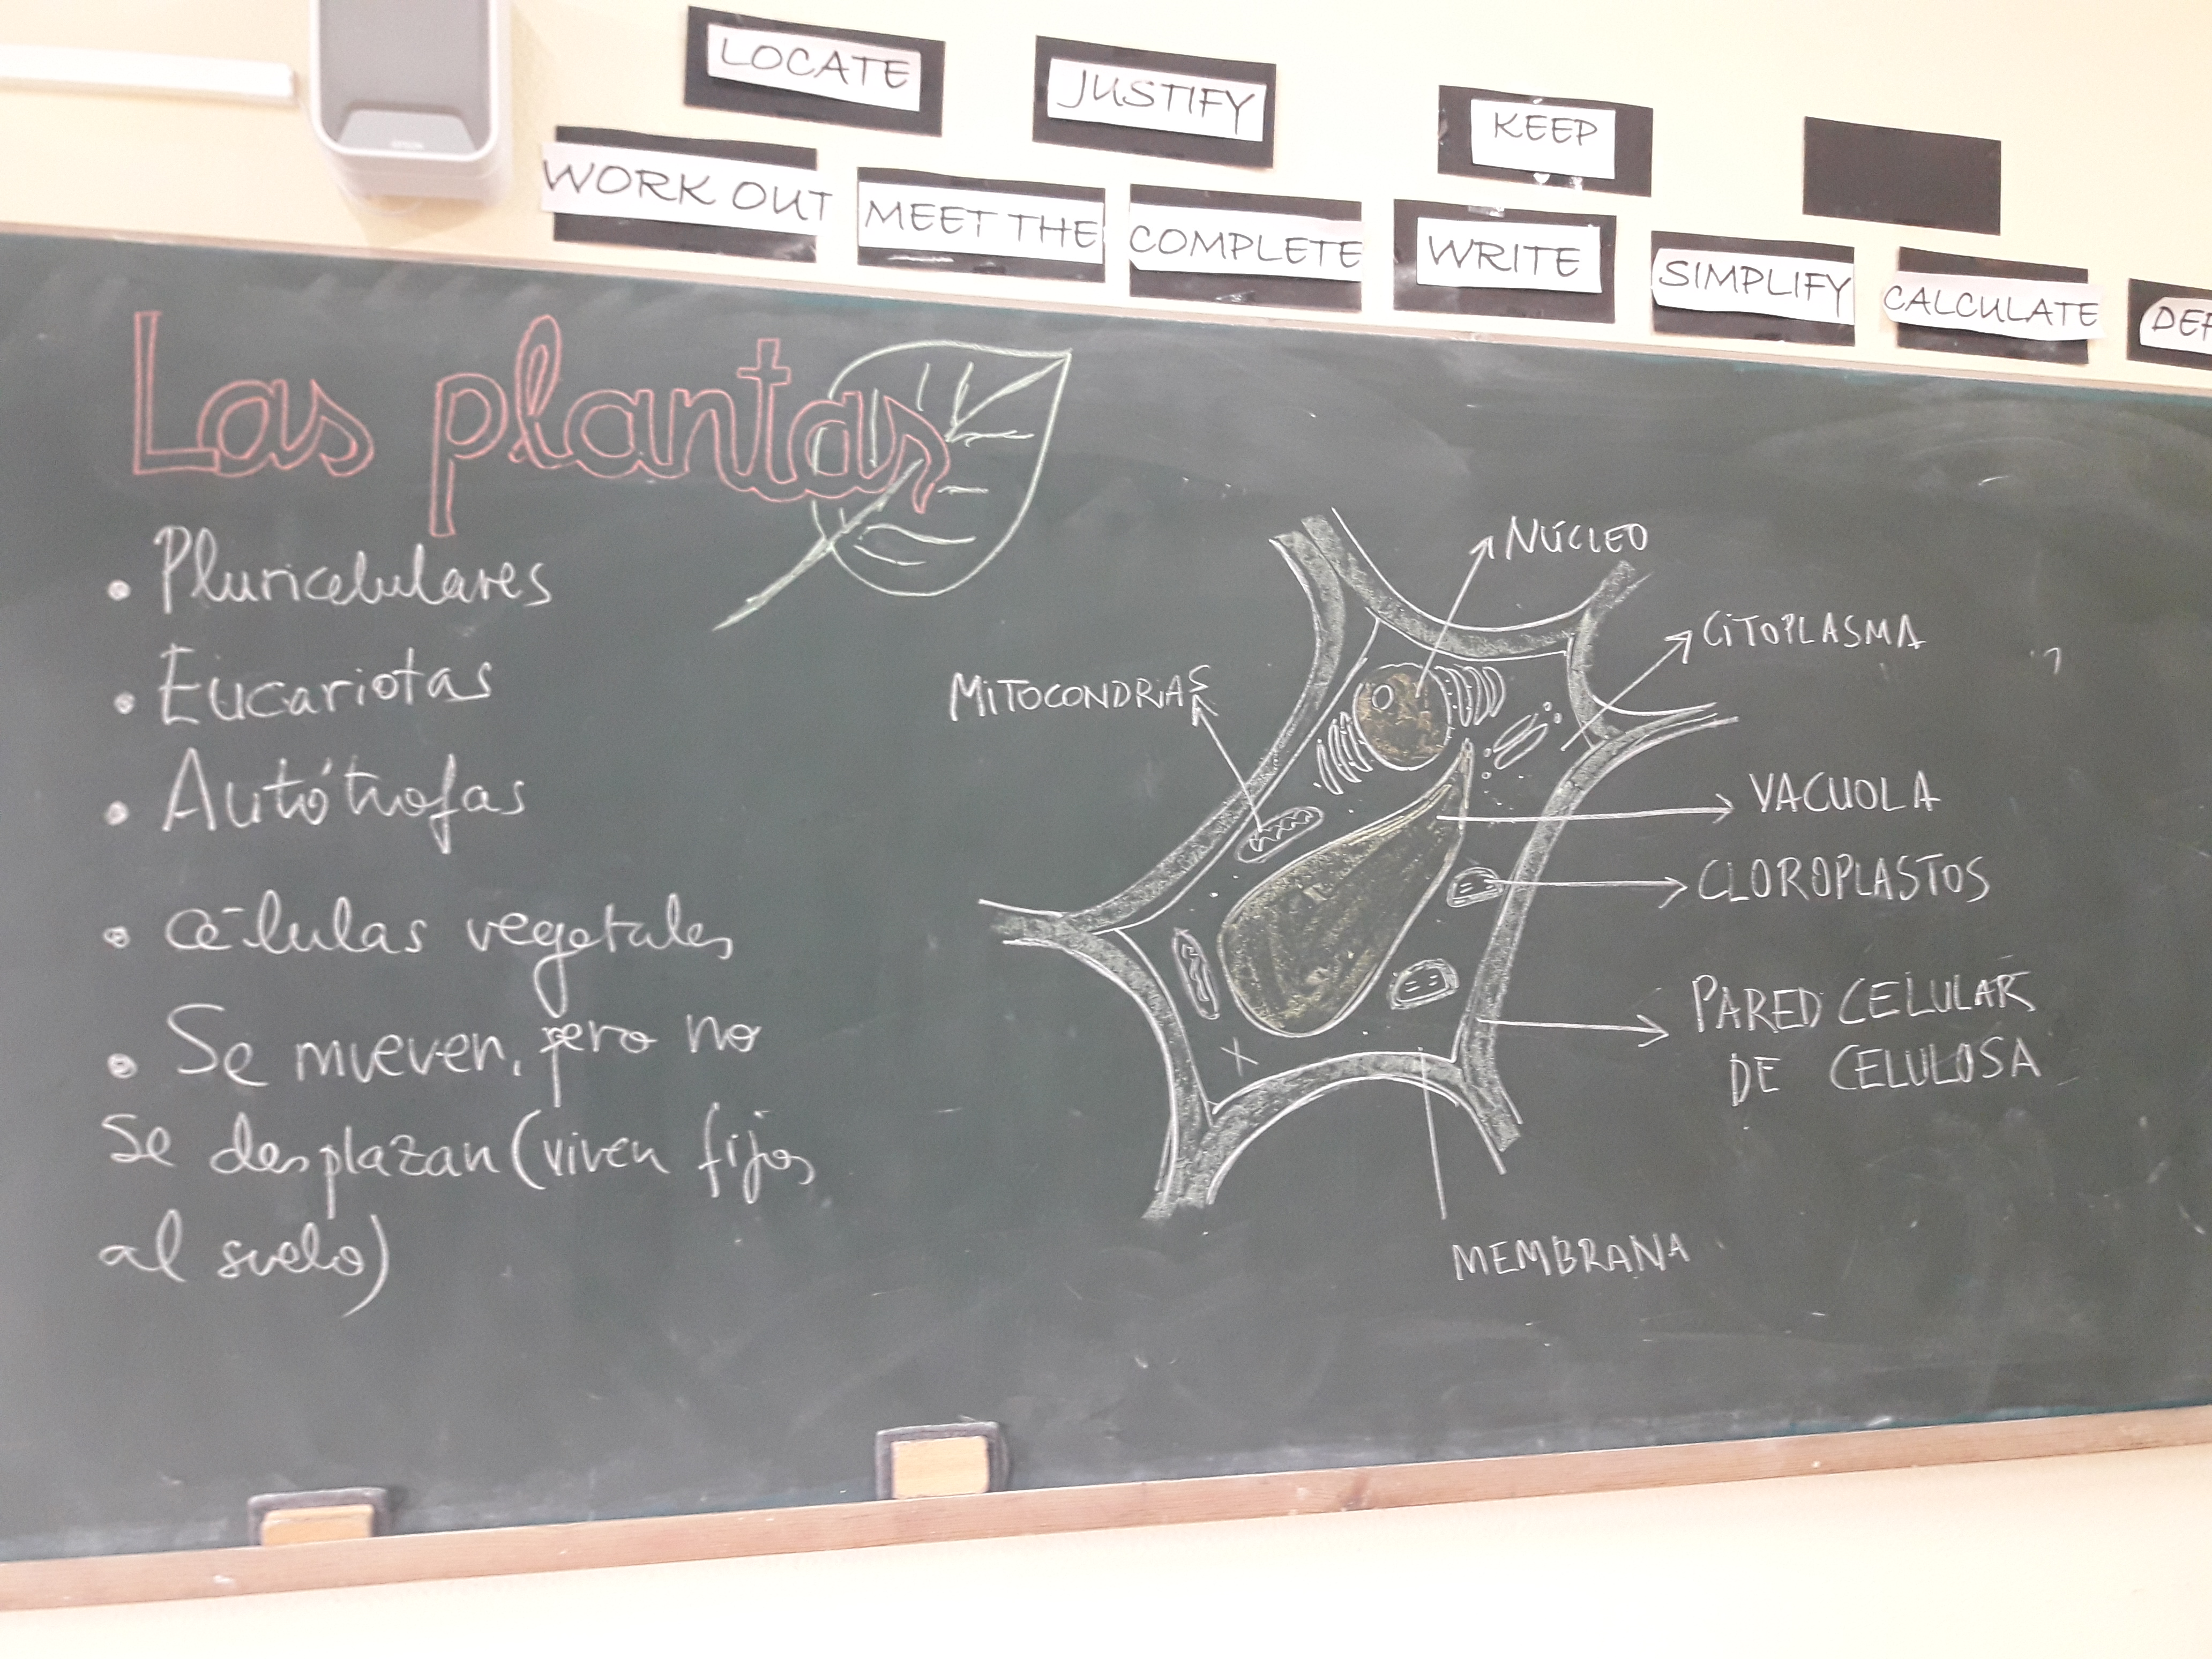 LOCATE JUSTIFY KEEP
WORK OUT MEET THE COMPLETE WRITE SIMPLIFY CALCULATE
Las plantas
• Pluricelulares
• Eucariotas
• Autótrofas
• Células vegetales
• Se mueven, pero no
se desplazan (viven fijos
al suelo)
NÚCLEO
CITOPLASMA
MITOCONDRIAS
VACUOLA
CLOROPLASTOS
PARED CELULAR
DE CELULOSA
MEMBRANA